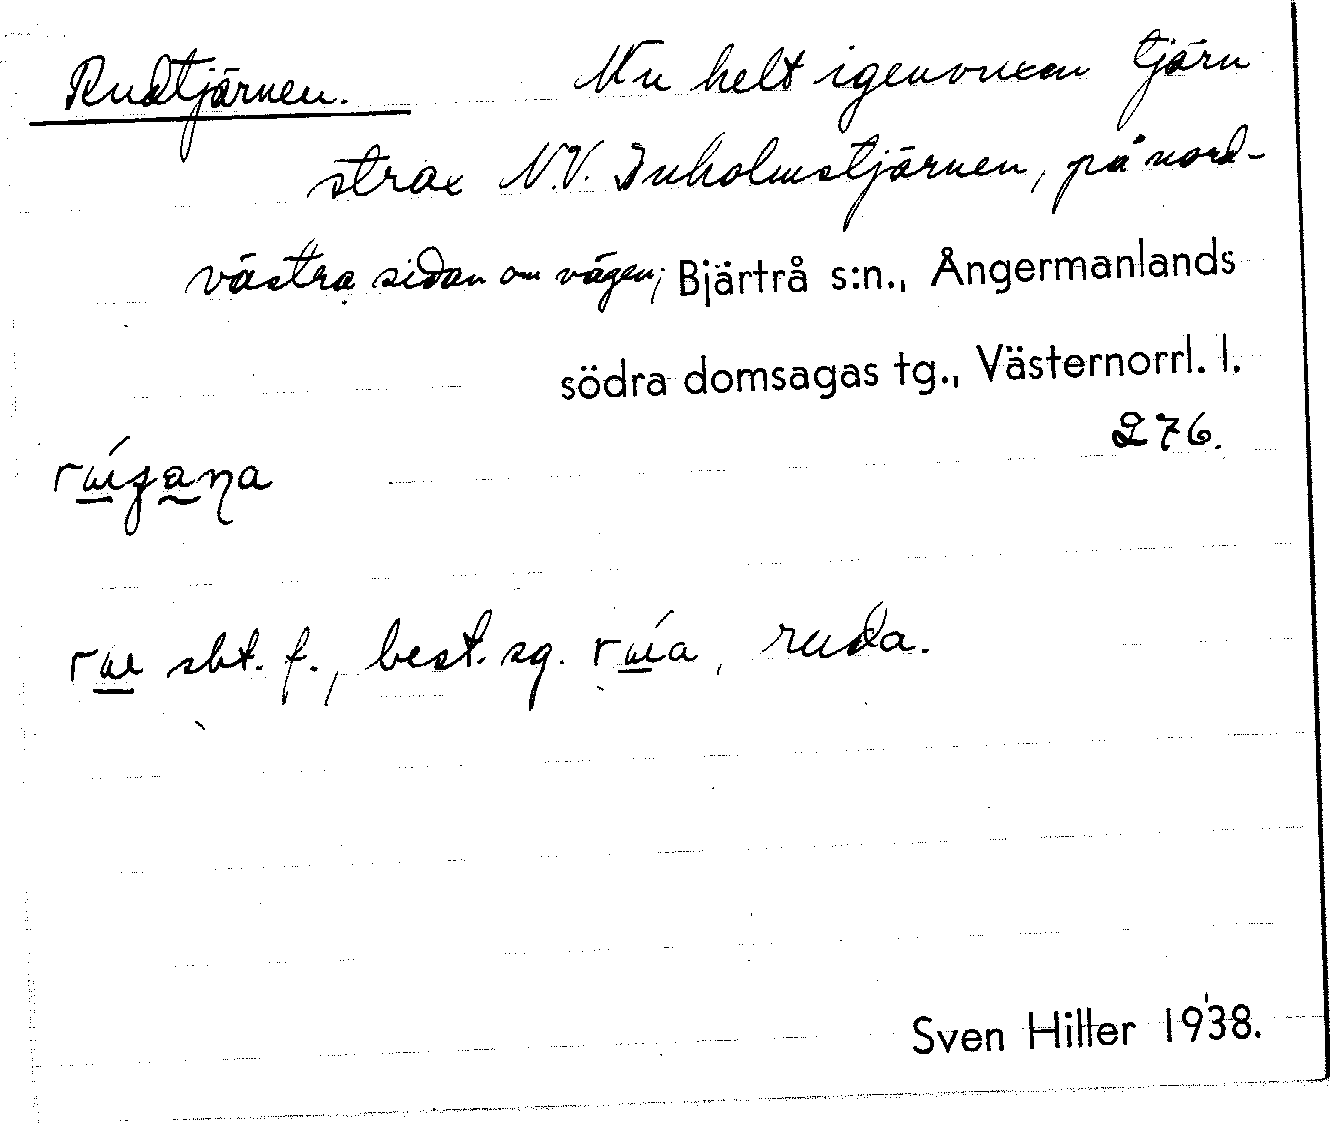 Rudtjärnen. Nu helt igenvuxen tjärn
strax N.V. Inholmstjärnen, på nord-
västra sidan om vägen; Bjärtrå s:n., Ångermanlands
södra domsagas tg., Västernorrl. l.
276.
sbt. f., best. sg. , ruda.
Sven Hiller 1938.